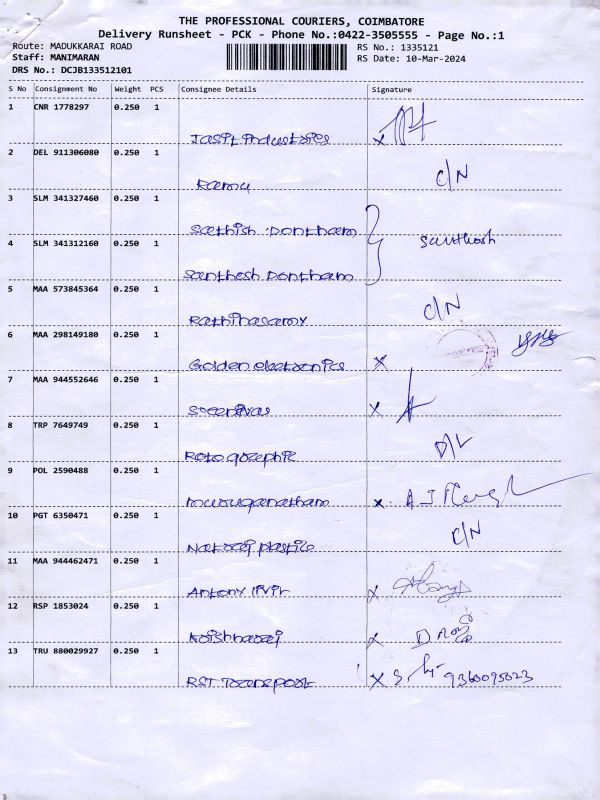 THE PROFESSIONAL COURIERS, COIMBATORE
Delivery Runsheet - PCK - Phone No.:0422-3505555 - Page No.:1
Route: MADUKKARAI ROAD RS No.: 1335121
Staff: MANIMARAN RS Date: 10-Mar-2024
DRS No.: DCJB133512101
S No Consignment No Weight PCS Consignee Details Signature
1 CNR 1778297 0.250 1
Jasit industries x
2 DEL 911306080 0.250 1
Ramu C/N
3 SLM 341327460 0.250 1
Sathish Dontham
4 SLM 341312160 0.250 1 Santhosh
Santhosh Dontham
5 MAA 573845364 0.250 1
Rathinasamy C/N
6 MAA 298149180 0.250 1
Golden electronics x
7 MAA 944552646 0.250 1
Sreenivas x
8 TRP 7649749 0.250 1
Roto graphic D/L
9 POL 2590488 0.250 1
Muruganatham x A J
10 PGT 6350471 0.250 1
Natraj plastics C/N
11 MAA 944462471 0.250 1
Antony x
12 RSP 1853024 0.250 1
Krishnaraj x
13 TRU 880029927 0.250 1
RST Transport x 9360095023